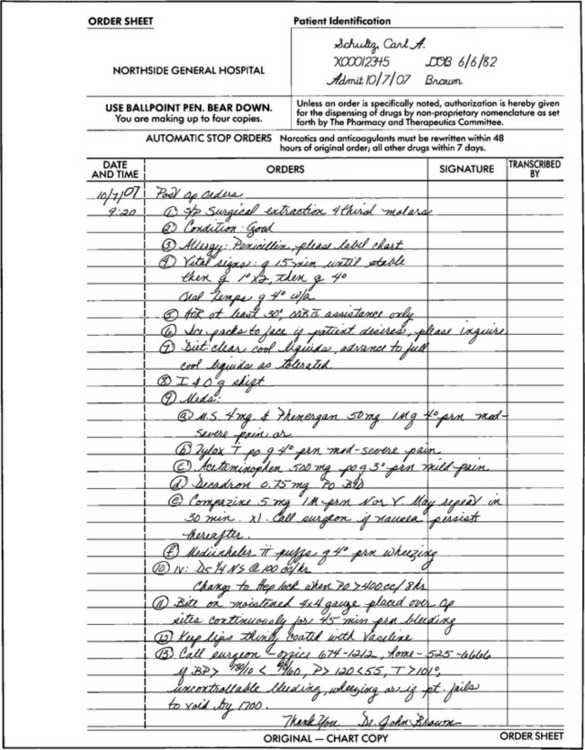 ORDER SHEET
Patient Identification
Schultz, Carl A.
X00012345 DOB 6/6/82
Admit 10/7/07 Brown
NORTHSIDE GENERAL HOSPITAL
USE BALLPOINT PEN. BEAR DOWN.
You are making up to four copies.
Unless an order is specifically noted, authorization is hereby given
for the dispensing of drugs by non-proprietary nomenclature as set
forth by The Pharmacy and Therapeutics Committee.
AUTOMATIC STOP ORDERS Narcotics and anticoagulants must be rewritten within 48
hours of original order; all other drugs within 7 days.
DATE AND TIME ORDERS SIGNATURE TRANSCRIBED BY
10/7/07 Post op orders
9:20 ① S/P Surgical extraction 4 third molars
② Condition: Good
③ Allergy: Penicillin, please label chart
④ Vital signs: q 15 min until stable
then q 1° x2, then q 4°
Oral Temps q 4° w/a
⑤ HOB at least 30°, assistance only
⑥ Ice packs to face if patient desires, please inquire
⑦ Diet: clear cool liquids, advance to full
cool liquids as tolerated.
⑧ I & O q shift
⑨ Meds:
ⓐ M.S. 4 mg. & Phenergan 50 mg IM q 4° prn mod-
severe pain or
ⓑ Tylox T po q 4° prn mod-severe pain
ⓒ Acetaminophen 500 mg po q 3° prn mild-pain.
ⓓ Decadron 0.75 mg PO BID
ⓔ Compazine 5 mg IM prn N or V. May repeat in
30 min. x1. Call surgeon if nausea persists
thereafter.
ⓕ Medinhaler TT puffs q 4° prn wheezing
⑩ IV: D5 1/4 NS @ 100 cc/hr
Change to Hep lock when PO > 400 cc/8hr
⑪ Bite on moistened 4x4 gauze placed over op
sites continuously for 45 min prn bleeding
⑫ Keep lips thinly coated with Vaseline
⑬ Call surgeon - office 674-1212, home - 525-6666
if BP > < /60, P > 120 < 55, T > 101°,
uncontrollable bleeding, wheezing or if pt. fails
to void by 1700.
Thank You Dr. John Brown
ORIGINAL — CHART COPY ORDER SHEET